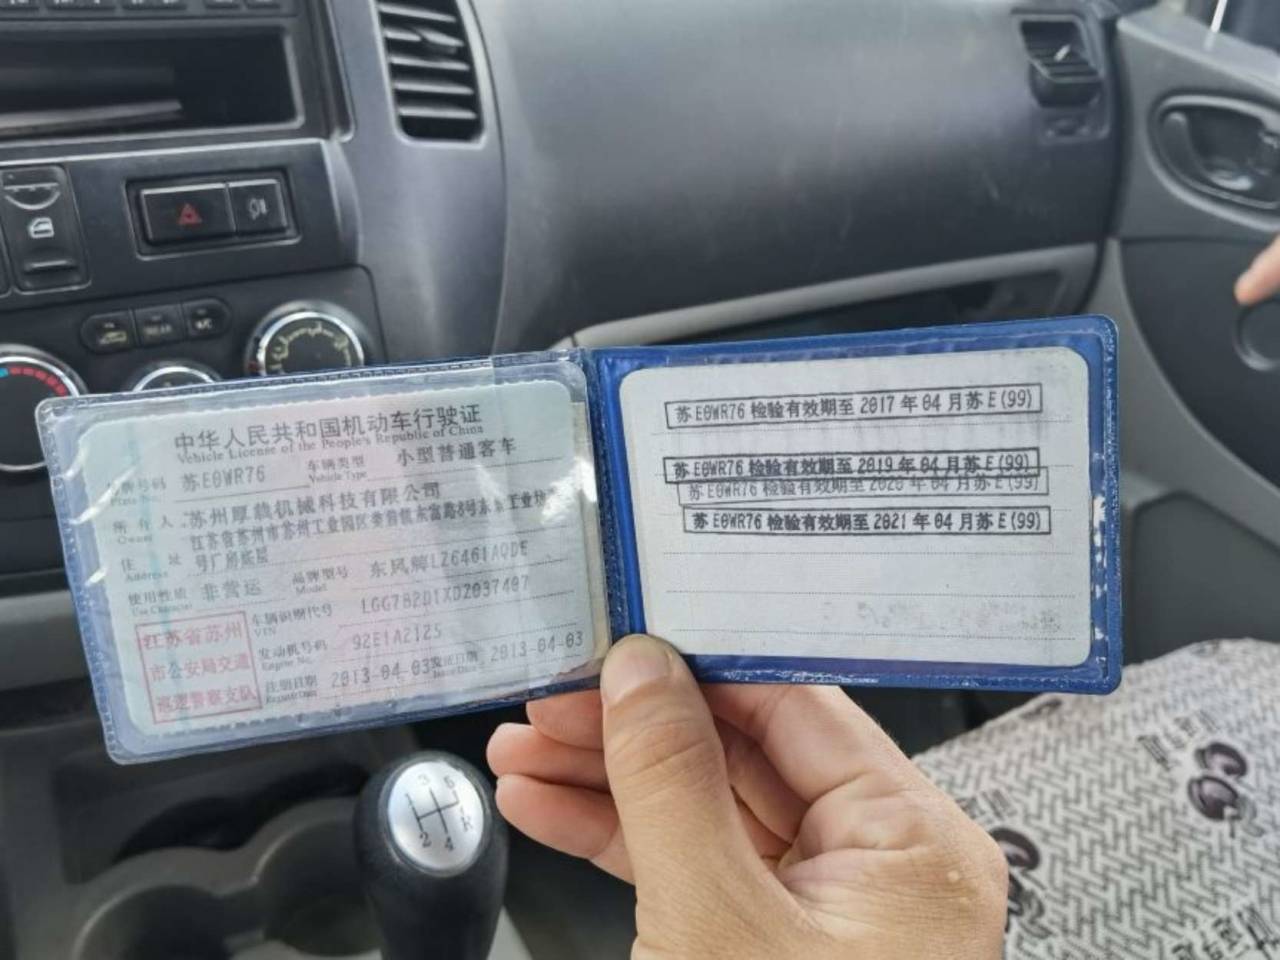 中华人民共和国机动车行驶证
Vehicle License of the People's Republic of China
号牌号码 苏E0WR76 车辆类型 小型普通客车
Plate No. Vehicle Type
所有人 苏州厚鼎机械科技有限公司
Owner
住址 江苏省苏州市苏州工业园区娄葑镇东富路8号东
Address 号厂房底层
使用性质 非营运 品牌型号 东风牌LZ6461AQDE
Use Character Model
车辆识别代号 LGG7B2D1XDZ037407
VIN
发动机号码 92E1A2125
Engine No.
注册日期 2013-04-03 发证日期 2013-04-03
Register Date Issue Date
江苏省苏州
市公安局交通
巡逻警察支队
苏E0WR76 检验有效期至 2017 年 04 月苏 E (99)
苏E0WR76 检验有效期至 2019 年 04 月苏 E (99)
苏E0WR76 检验有效期至 2020 年 04 月苏 E (99)
苏E0WR76 检验有效期至 2021 年 04 月苏 E (99)
1 3 5
2 4 R